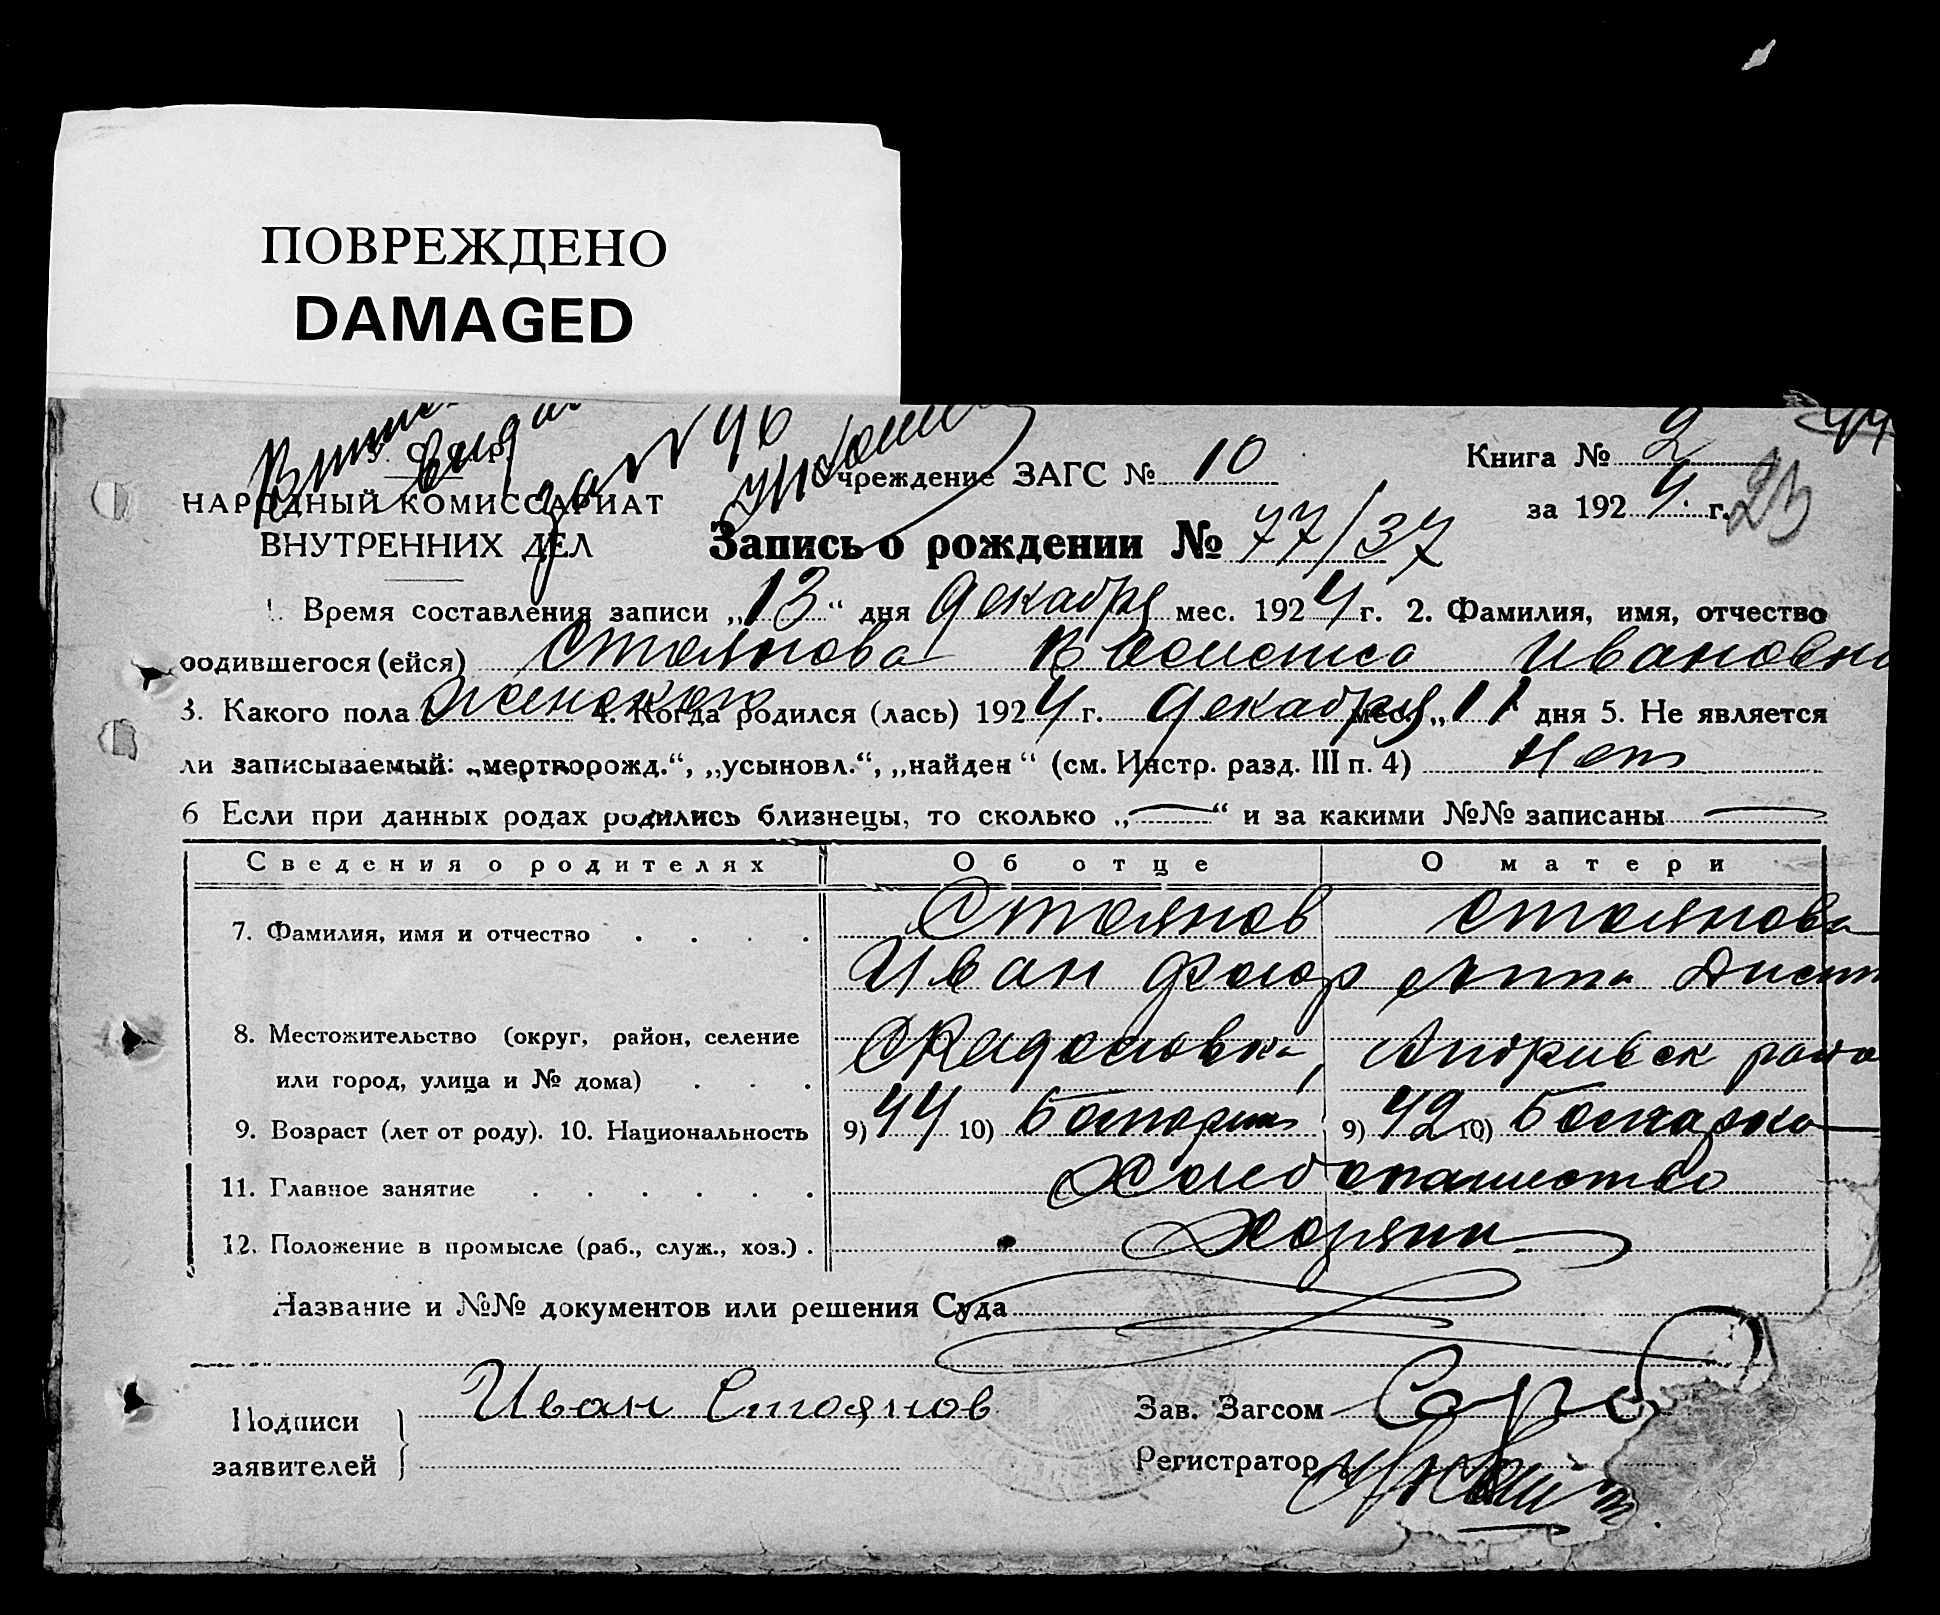 ПОВРЕЖДЕНО
DAMAGED
зап № 96
Учреждение ЗАГС № 10
Книга № 2
НАРОДНЫЙ КОМИССАРИАТ
за 1924 г. 23
ВНУТРЕННИХ ДЕЛ
Запись о рождении № 77/37
1. Время составления записи „13“ дня декабря мес. 1924 г. 2. Фамилия, имя, отчество
родившегося (ейся) Стоянова Ивановна
3. Какого пола женского 4. Когда родился (лась) 1924 г. декабря мес. „11“ дня 5. Не является
ли записываемый: „мертворожд.“, „усыновл.“, „найден“ (см. Инстр. разд. III п. 4) Нет
6 Если при данных родах родились близнецы, то сколько „—“ и за какими №№ записаны —
Сведения о родителях Об отце О матери
7. Фамилия, имя и отчество Стоянов Стоянова
Иван Федор Анна
8. Местожительство (округ, район, селение
или город, улица и № дома)
9. Возраст (лет от роду). 10. Национальность 9) 44 10) Болгарин 9) 42 10) Болгарка
11. Главное занятие Хлебопашество
12. Положение в промысле (раб., служ., хоз.) Хозяин
Название и №№ документов или решения Суда
Подписи заявителей Иван Стоянов
Зав. Загсом
Регистратор